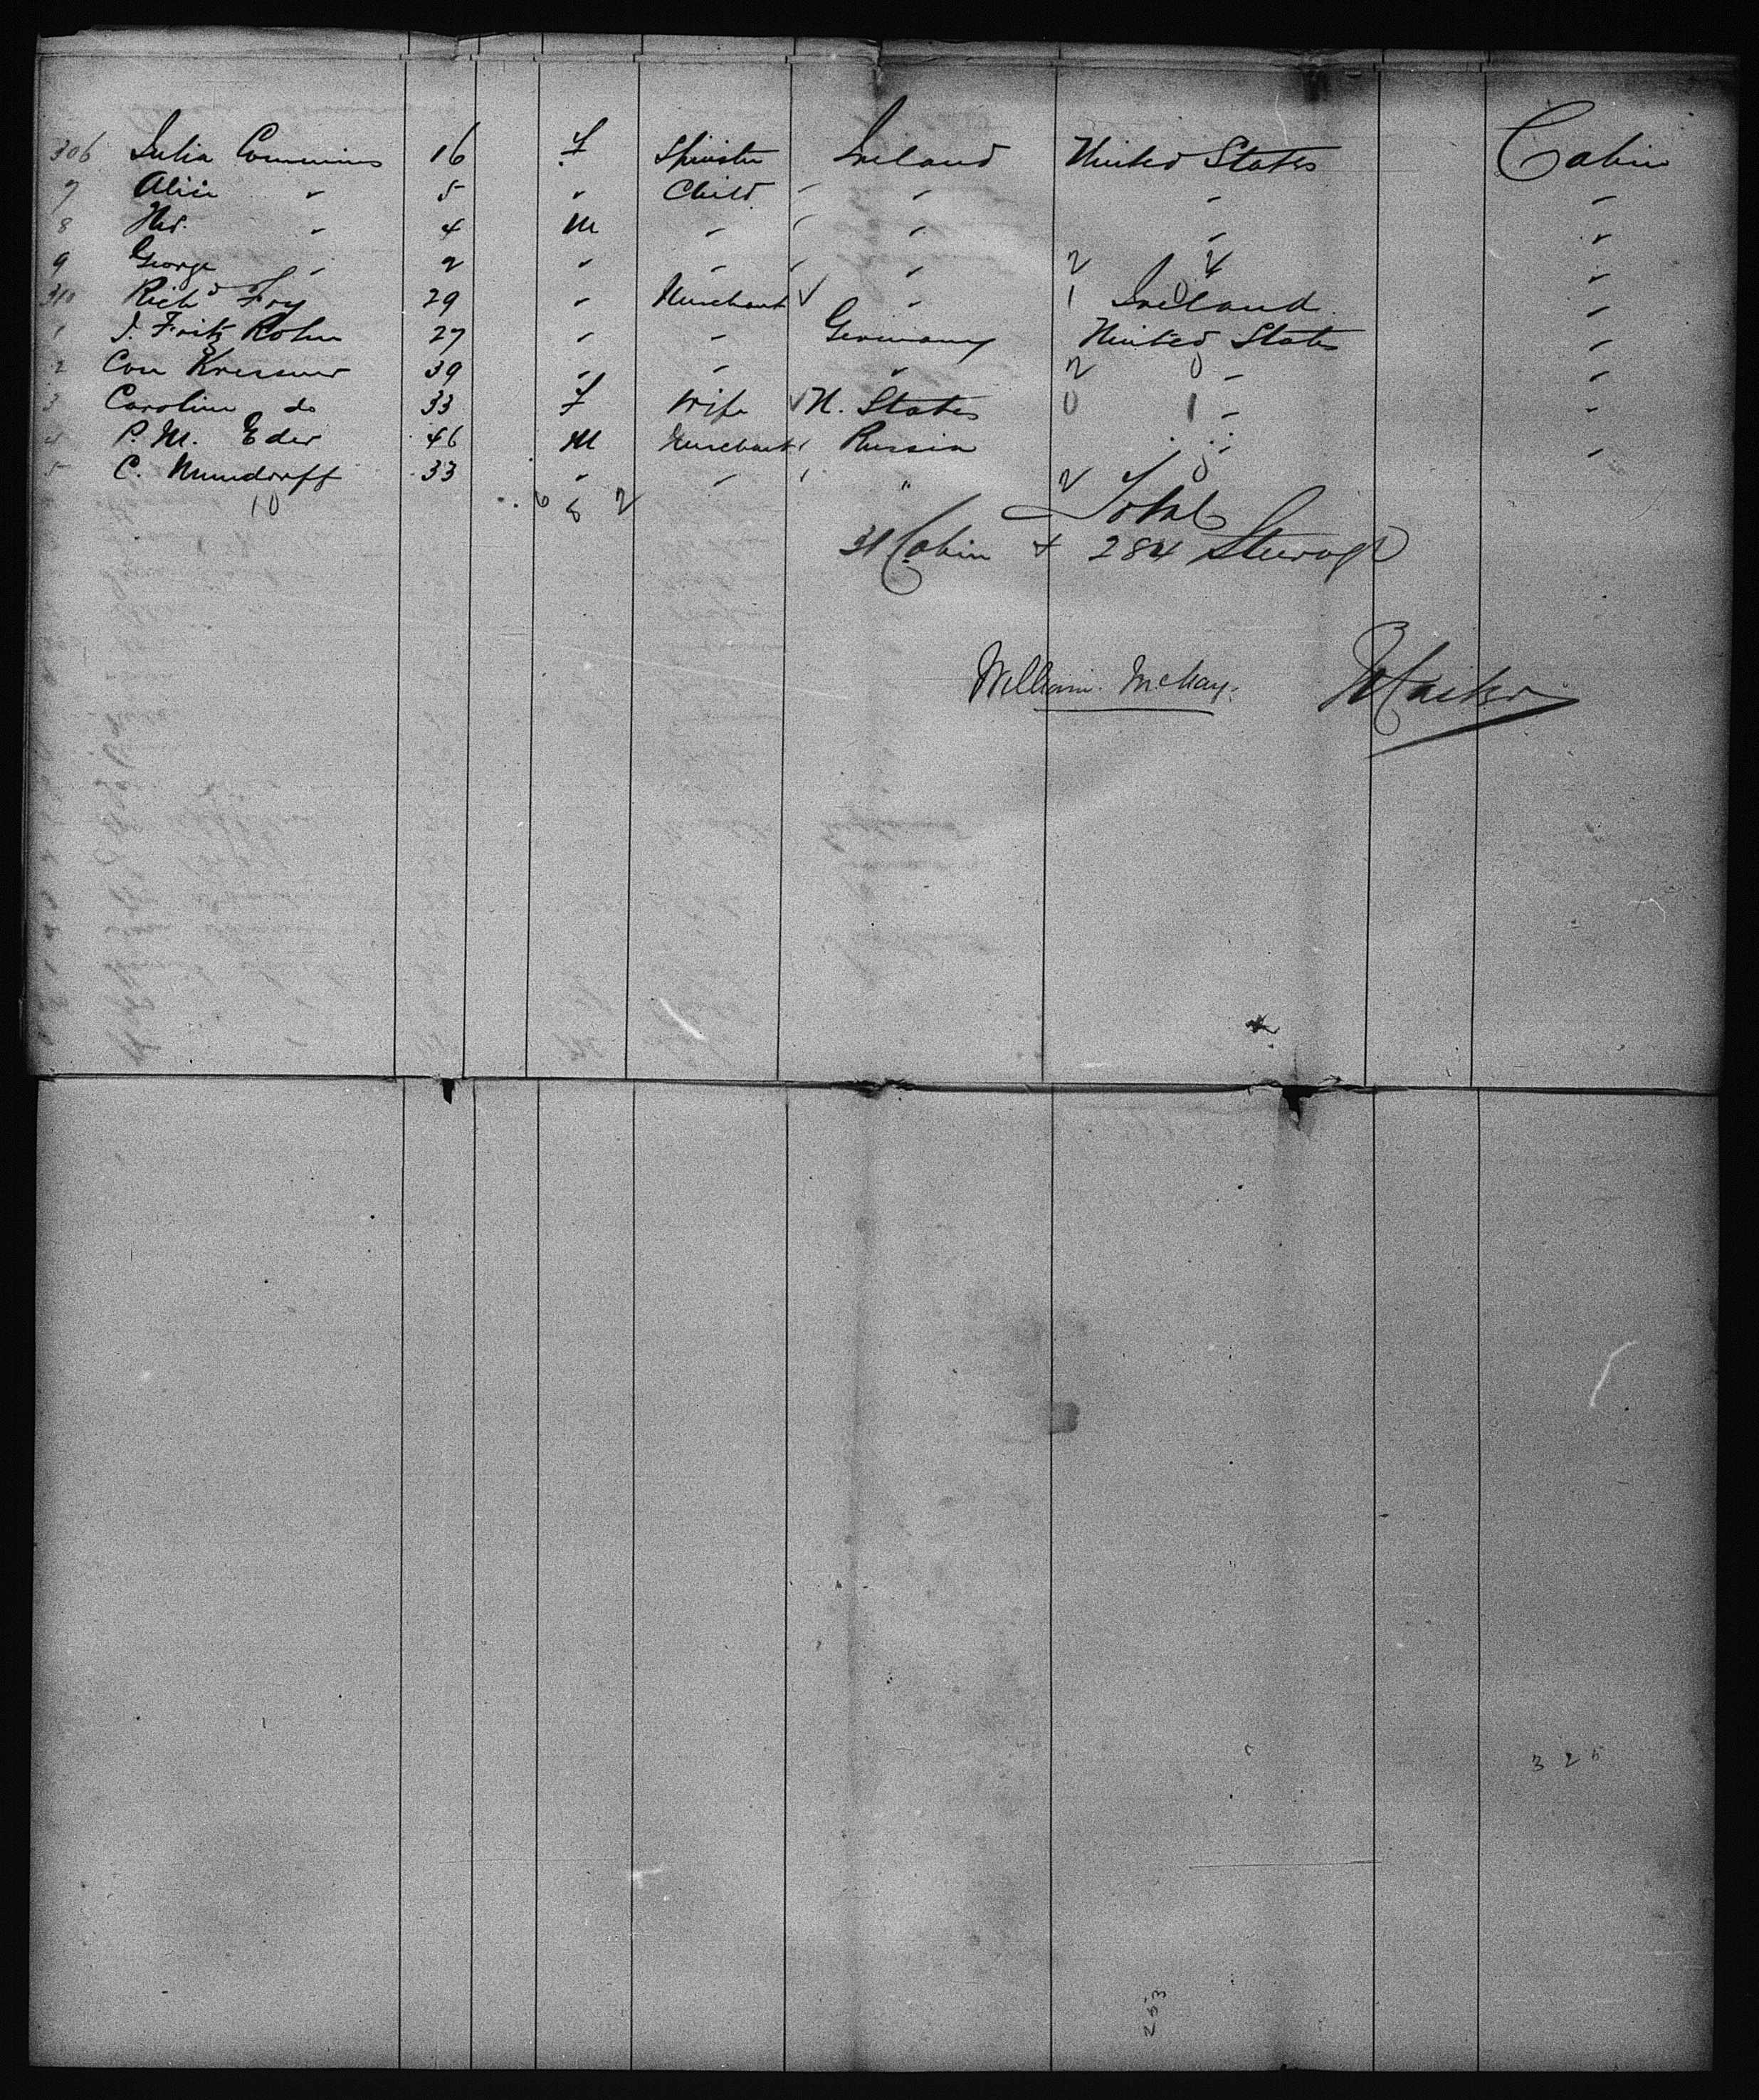 306 Julia Commins 16 F Spinster Ireland United States Cabin
7 Alice " 5 " Child " " "
8 " 4 M " " " "
9 George " 2 " " " 2 4 "
310 Richd Foy 29 " Merchant " 1 Ireland 0 "
1 J. Fritz Rohn 27 " " Germany United States "
2 Con Kressner 39 " " " 2 0 " "
3 Caroline do 33 F Wife U. States 0 1 " "
4 P. M. Eder 46 M Merchant Russia " "
5 C. Mumdorff 33 " " " 2 0
10 6 6 2 Total
31 Cabin + 284 Steerage
William McKay. Master
325
253